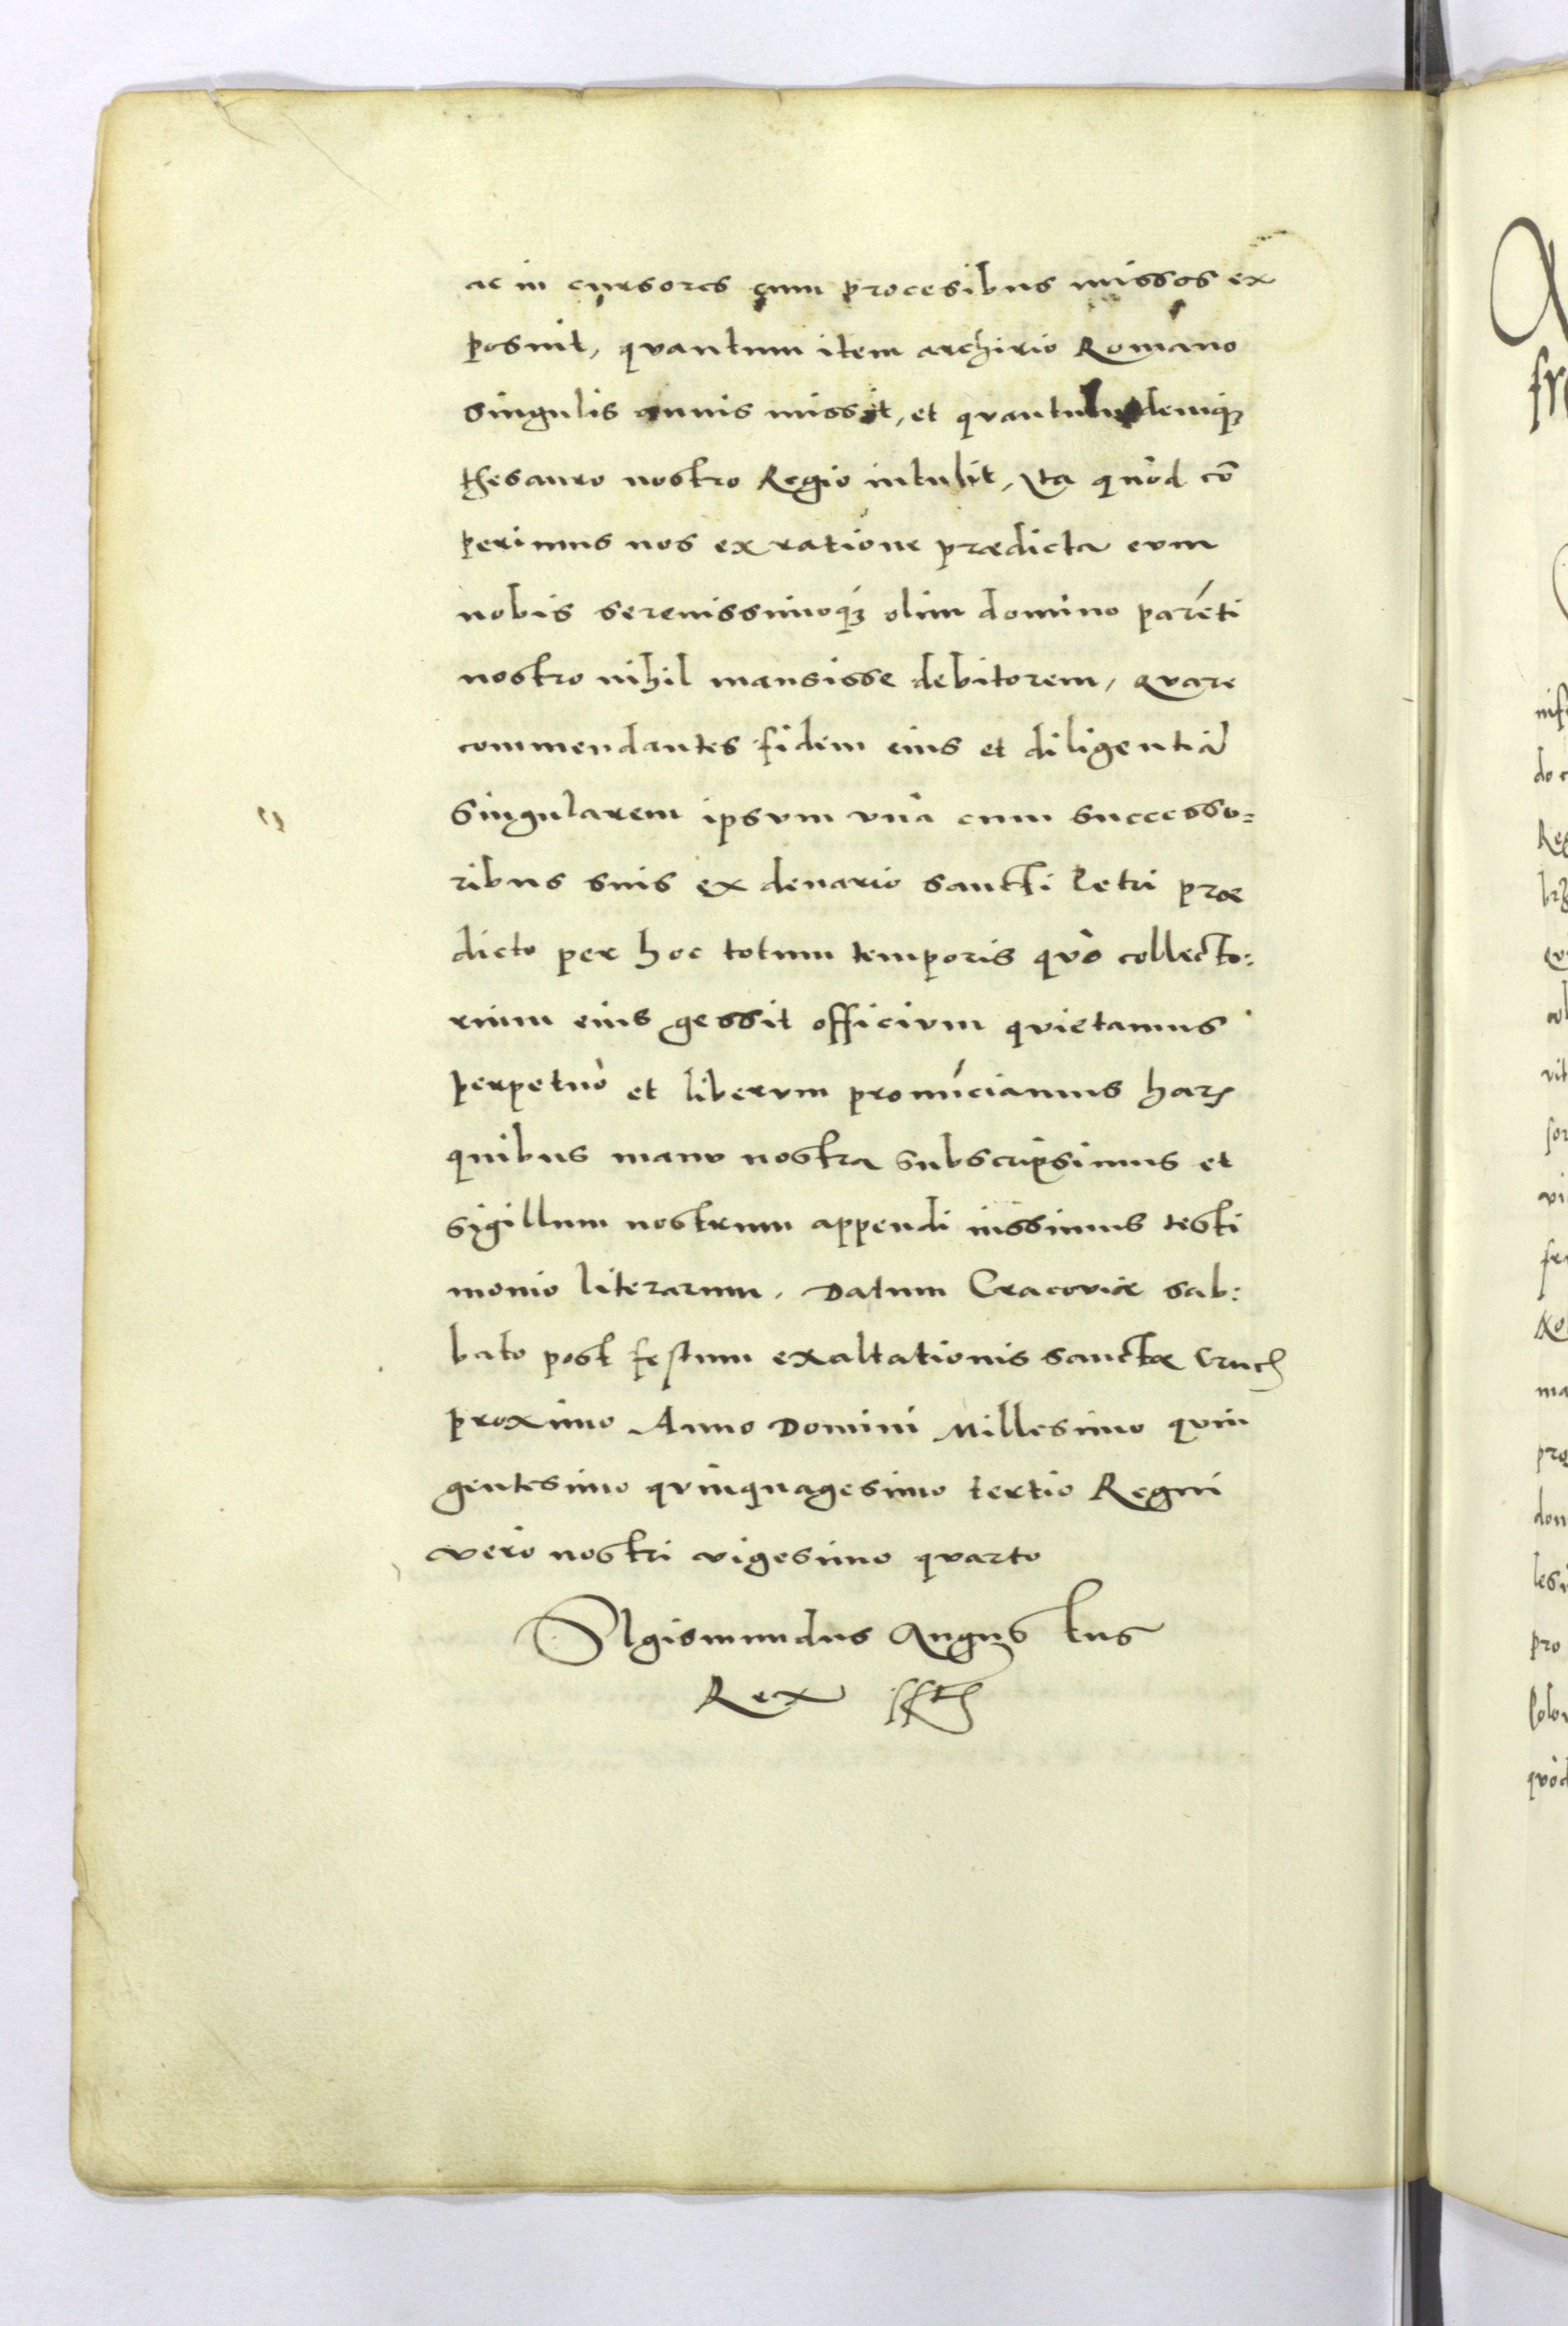 ac in cursores cum procesibus missos ex
posuit, quantum item archivio Romano
singulis annis missit, et quantulu denique
thesauro nostro Regio intulit, Ita quòd cō
perimus nos ex ratione prædicta eum
nobis serenissimoq; olim domino parēti
nostro nihil mansisse debitorem, quare
commendantes fidem eius et diligentiā
singularem ipsum unà cum successo=
ribus suis ex denario sancti Petri præ
dicto per hoc totum temporis quo collecto:
rium eius gessit officium quietamus
perpetuò et liberum pronūciamus harꝫ
quibus manu nostra subscripsimus et
sigillum nostrum appendi iussimus testi
monio literarum. Datum Cracoviæ sab:
bato post festum exaltationis sanctæ Crucis
proximo Anno Domini Millesimo quin
gentesimo quinquagesimo tertio Regni
vero nostri vigesimo quarto
Sigismundus Augus tus
Rex